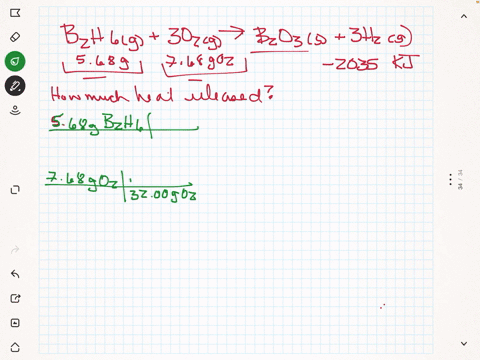 B₂H₆(g) + 3O₂(g) → B₂O₃(s) + 3H₂(g)
5.68g 7.68gO₂ -2035 KJ
How much heat released?
5.68gB₂H₆
7.68gO₂
32.00gO₂
34 / 34